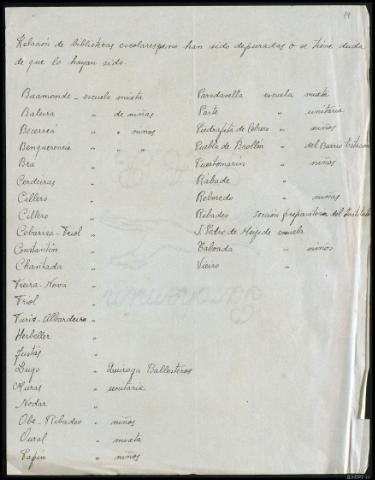 14
Relación de bibliotecas escolares que no han sido depuradas o se tiene duda
de que lo hayan sido.
Baamonde - escuela mixta
Baleira " de niñas
Becerrea " " niños
Benquerencia " " "
Bra "
Cordeiras "
Cillero "
Cillero "
Cobarrea - Friol "
Constantin "
Chantada "
Freira - Nova "
Friol "
Turis - Albardeiro "
Herbeller "
Justás "
Lugo " Quiroga Ballesteros
Muras " unitaria
Nodar "
Obe - Ribadeo " niños
Oural " mixta
" niños
Paradavella escuela mixta
Parte " unitaria
Piedrafita de Cebrero " niños
Puebla de Brollón " del Barrio
Puertomarin " niños
Rabade "
Reboredo " niñas
Ribadeo sección preparatoria del Instituto
S. Pedro de escuela
Taboada " niños
Vieiro "